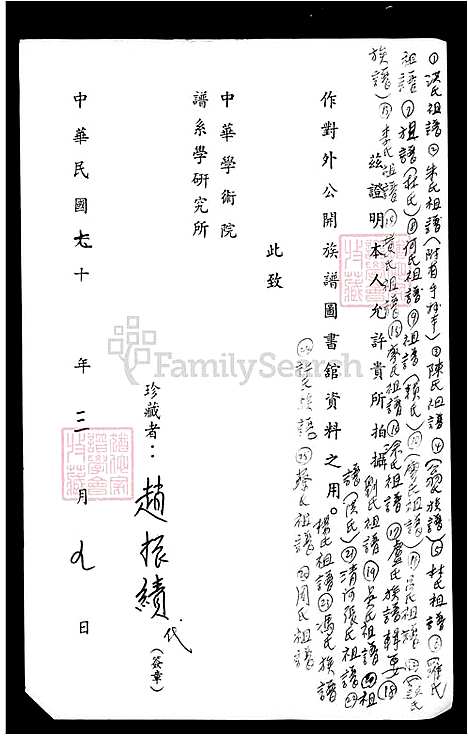 ①洪氏祖譜②朱氏祖譜(附首手抄本)③陳氏祖譜④(翁氏族譜)⑤杜氏祖譜⑥羅氏
祖譜⑦祖譜(林氏)⑧何氏祖譜⑨祖譜(賴氏)⑩廖氏祖譜⑪氏祖譜⑫氏
族譜⑬李氏祖譜⑭黃氏祖譜⑮廖氏祖譜⑯余氏祖譜⑰盧氏族譜輯要⑱
茲證明本人允許貴所拍攝
劉氏祖譜⑲吳氏祖譜⑳祖
譜(洪氏)㉑清河張氏祖譜㉒
作對外公開族譜圖書館資料之用。
楊氏祖譜㉓馮氏族譜
許氏族譜㉕蔡氏祖譜㉖周氏祖譜
此致
中華學術院
譜系學研究所
珍藏者：趙振績代(簽章)
中華民國七十年三月九日
FamilySearch